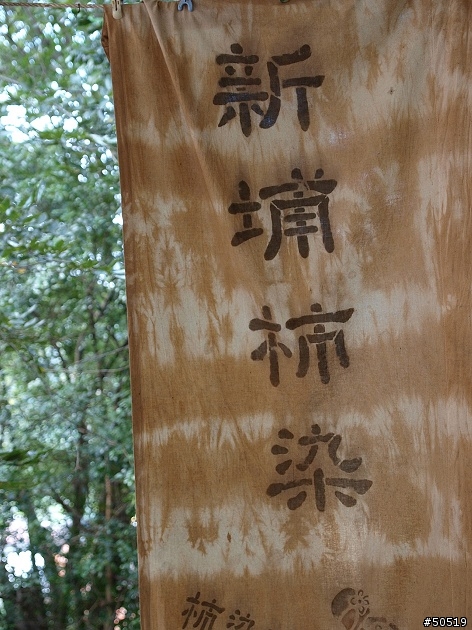 新埔柿染
柿染
#50519